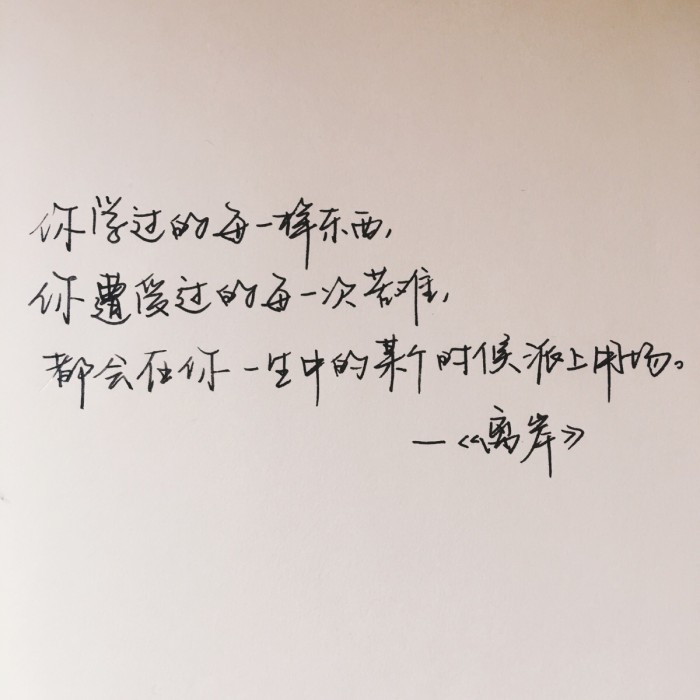 你学过的每一样东西,
你遭受过的每一次苦难,
都会在你一生中的某个时候派上用场。
—《离岸》